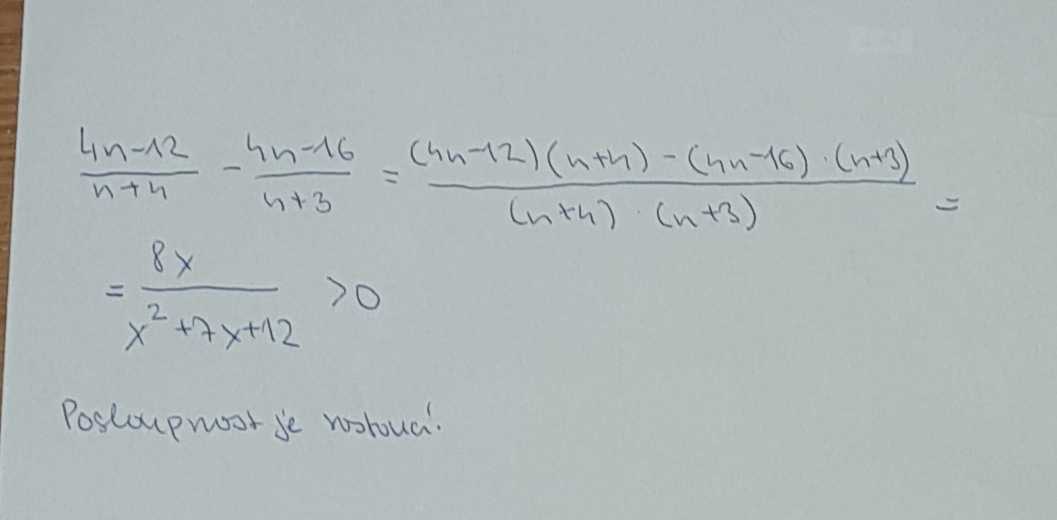 (4n-12)/(n+4) - (4n-16)/(n+3) = ((4n-12)(n+4) - (4n-16)·(n+3))/((n+4)·(n+3)) =
= 8x/(x²+7x+12) >0
Posloupnost je rostoucí.